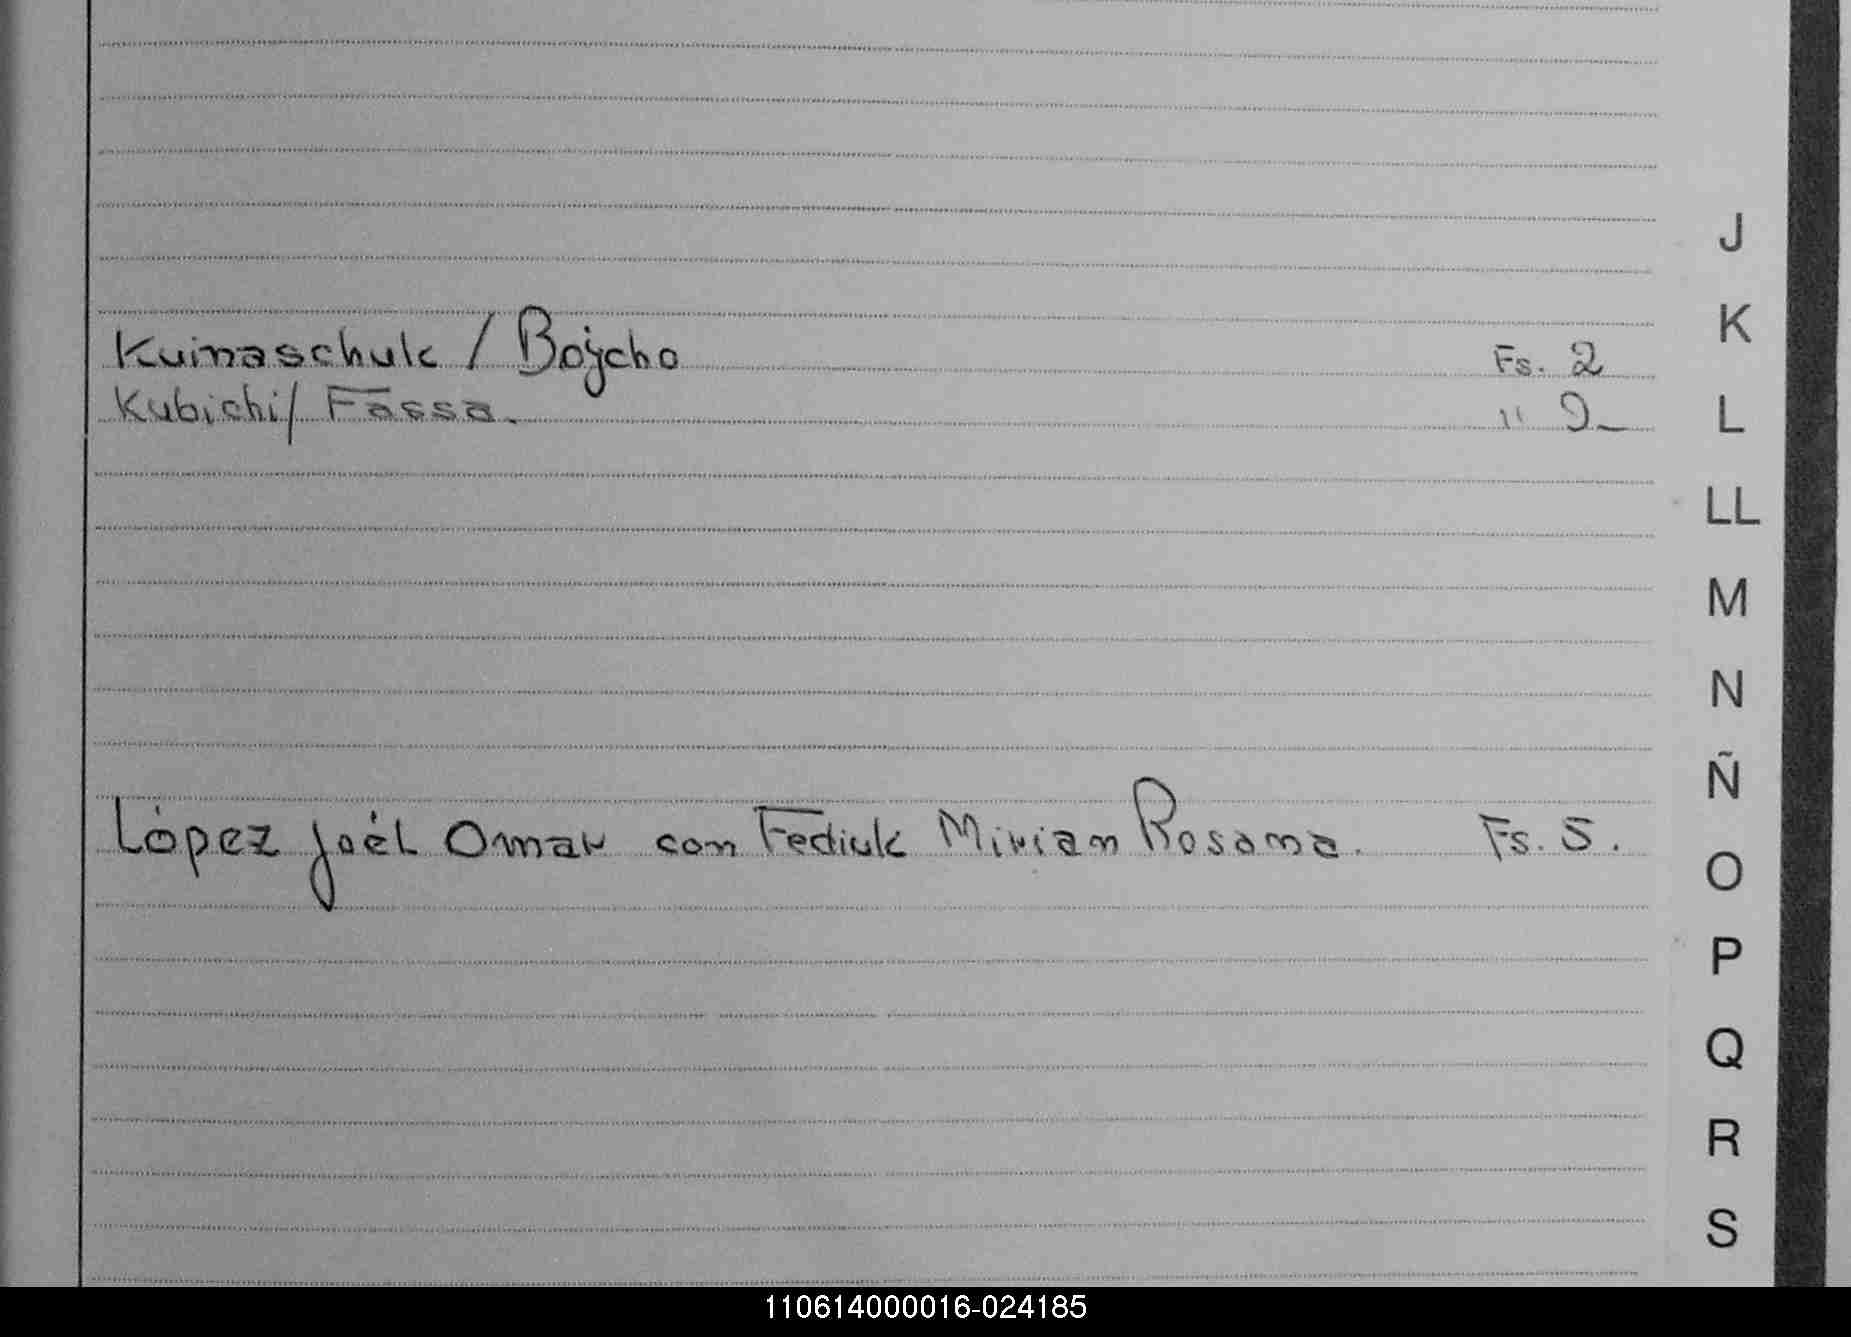 J
K
Kuinaschuk / Boycho Fs. 2
Kubichi / Fassa. " 9_
L
LL
M
N
Ñ
López Joél Omar con Fediuk Mirian Rosana. Fs. 5.
O
P
Q
R
S
110614000016-024185